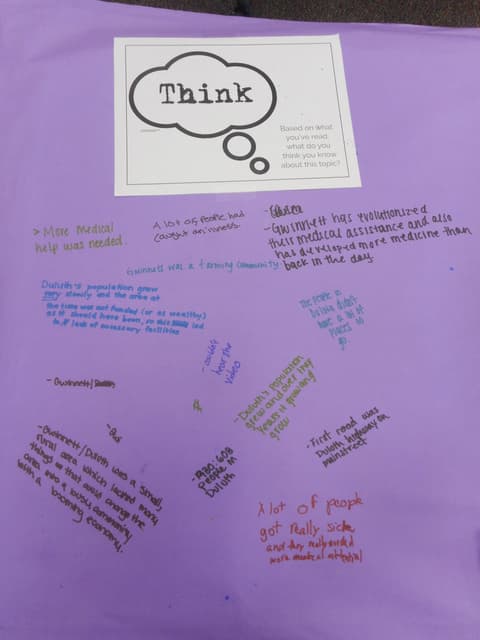 Think
Based on what
you've read,
what do you
think you know
about this topic?
> More Medical
help was needed.
A lot of people had
caught an illness.
- Gwinnett has evolutionized
their medical assistance and also
has developed more medicine than
back in the day.
Gwinnett was a farming community
Duluth's population grew
very slowly and the area at
the time was not funded (or as wealthy)
as it should have been, so this led
to a lack of necessary facilities
The people in
Duluth didn't
have a lot of
places to
go.
video
- Gwinnett/
- Duluth's population
grew and over the
years it
grow
- First road was
Duluth highway on
mainstreet
- Gwinnett/Duluth was a small,
rural area which lacked many
things so that would change the
area into a busy community
with a booming economy.
- 1980: 608
people in
Duluth
A lot of people
got really sick
and they really needed
more medical